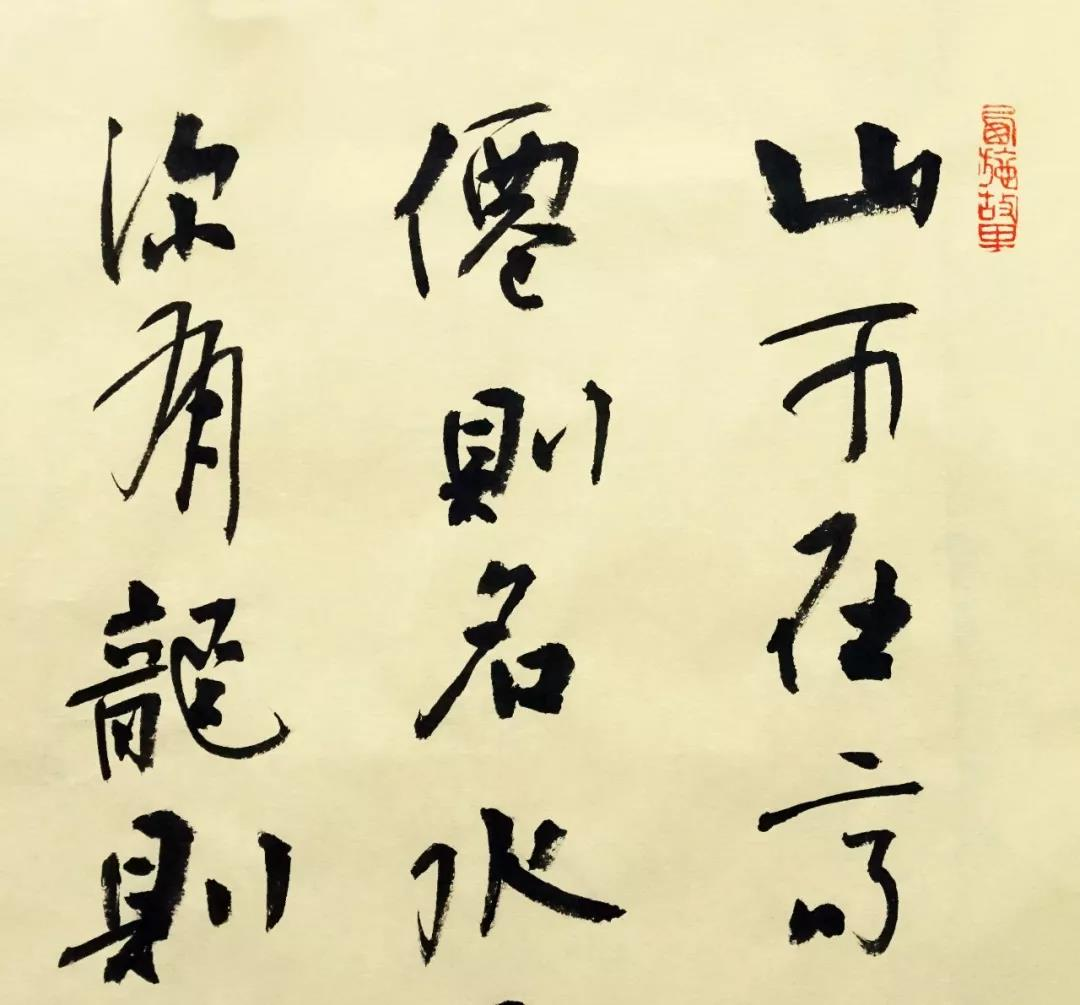 西施故里
山不在高
僊則名水
深有龍則